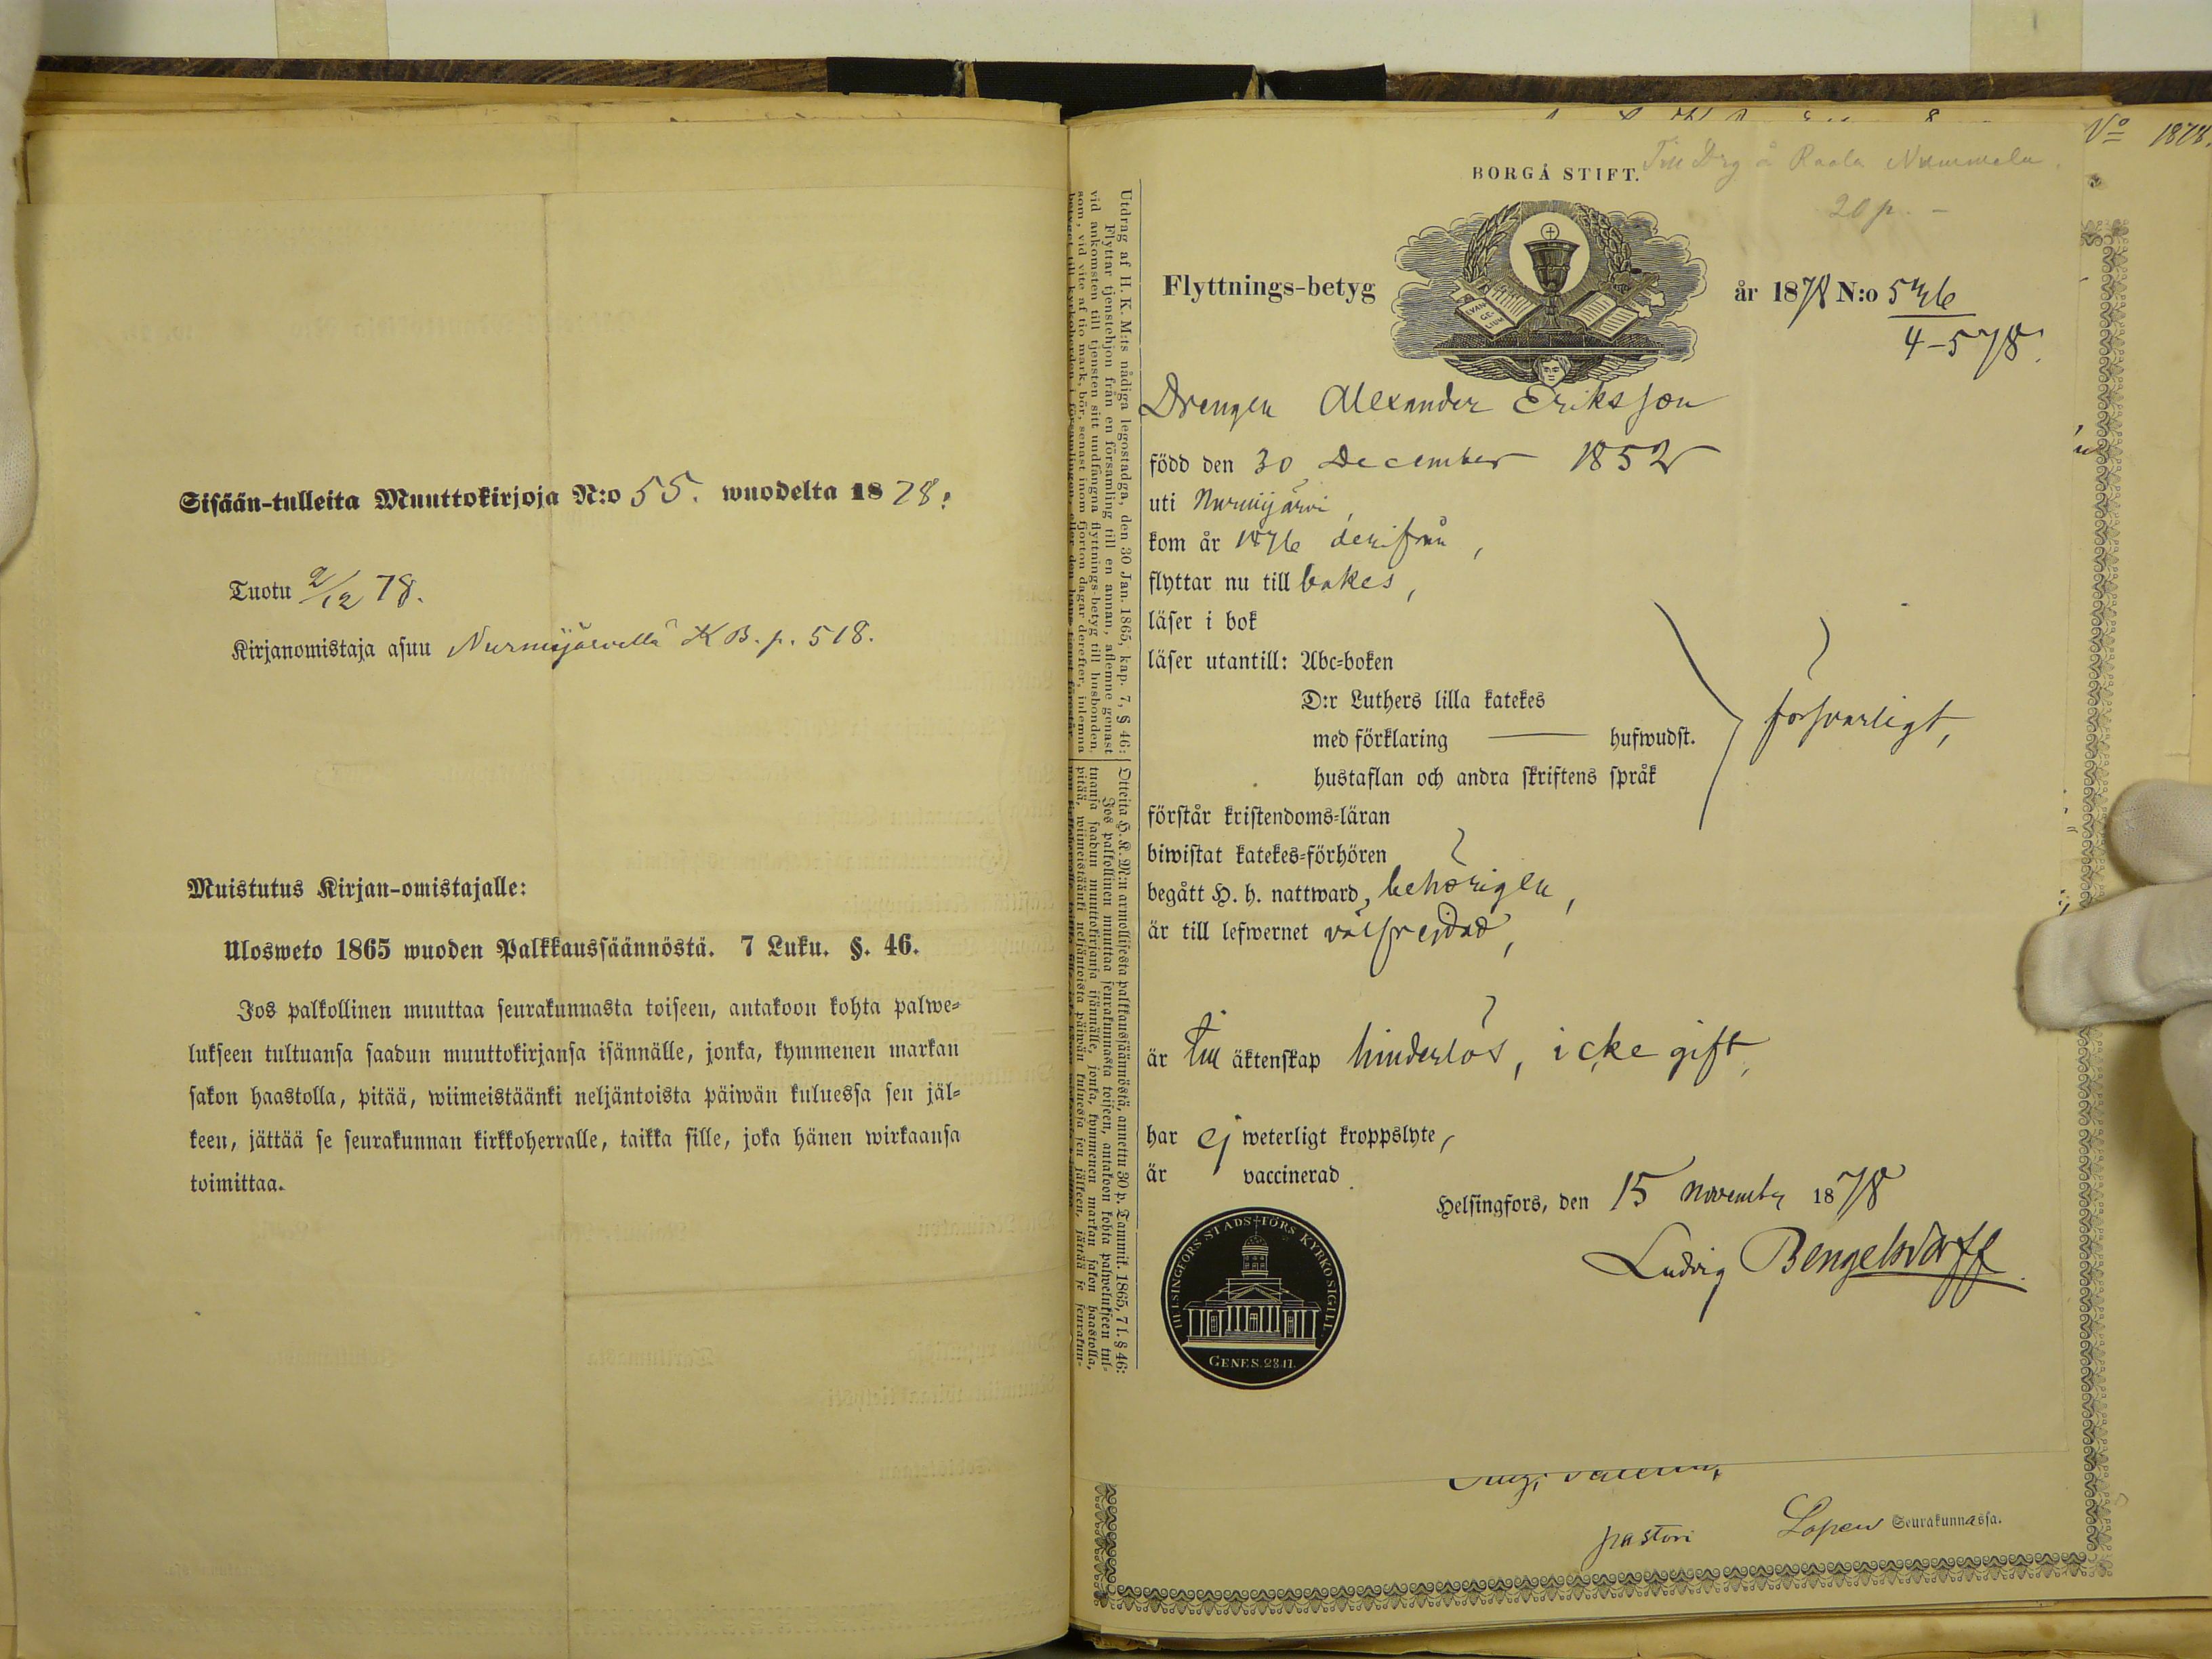 Sisään-tulleita Muuttokirjoja N:o 55. wuodelta 1878.
Tuotu 2/12 78.
Kirjanomistaja asuu Nurmijärvellä KB. p. 518.
Muistutus Kirjan-omistajalle:
Ulosweto 1865 wuoden Palkkaussäännöstä. 7 Luku. §. 46.
Jos palkollinen muuttaa seurakunnasta toiseen, antakoon kohta palwe-
lukseen tultuansa saadun muuttokirjansa isännälle, jonka, kymmenen markan
sakon haastolla, pitää, wiimeistäänki neljäntoista päiwän kuluessa sen jäl-
keen, jättää se seurakunnan kirkkoherralle, taikka sille, joka hänen wirkaansa
toimittaa.
Utdrag af H. K. M:ts nådiga legostadga, den 30 Jan. 1865, kap. 7, § 46:
Flyttar tjenstehjon från en församling till en annan, aflemne genast
vid ankomsten till tjensten sitt undfångna flyttnings-betyg till husbonden,
som, vid vite af tio mark, bör, senast inom fjorton dagar derefter, inlemna
Otteita H. K. M:n armollisesta palkkaussäännöstä, annettu 30 p. Tammik. 1865, 7 l. § 46:
Jos palkollinen muuttaa seurakunnasta toiseen, antakoon kohta palwelukseen tul-
tuansa saadun muuttokirjansa isännälle, jonka, kymmenen markan sakon haastolla,
pitää, wiimeistäänki neljäntoista päiwän kuluessa sen jälkeen, jättää se seurakun-
BORGÅ STIFT.
Till Drg å Raala Nummela.
20 p. -
Flyttnings-betyg
EVAN
GE-
LIUM
år 1878 N:o 546
4-578.
Drengen Alexander Eriksson
född den 30 December 1852
uti Nurmijärvi,
kom år 1876 derifrån,
flyttar nu till bakes,
läser i bok
läser utantill: Abc-boken
D:r Luthers lilla katekes
med förklaring hufwudst.
hustaflan och andra skriftens språk
försvarligt,
förstår kristendoms-läran
biwistat katekes-förhören
begått H. h. nattward, behörigen,
är till lefwernet välfrejdad,
är till äktenskap hinderlös, icke gift,
har ej weterligt kroppslyte,
är vaccinerad.
Helsingfors, den 15 November 1878
Ludvig Bengelsdorff.
HELSINGFORS STADS FÖRS KYRKO SIGILL.
GENES. 28.17.
pastori
Lopen Seurakunnassa.
No 1878.